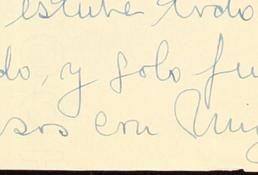 estuve todo
do, y solo fu
sos con Mig